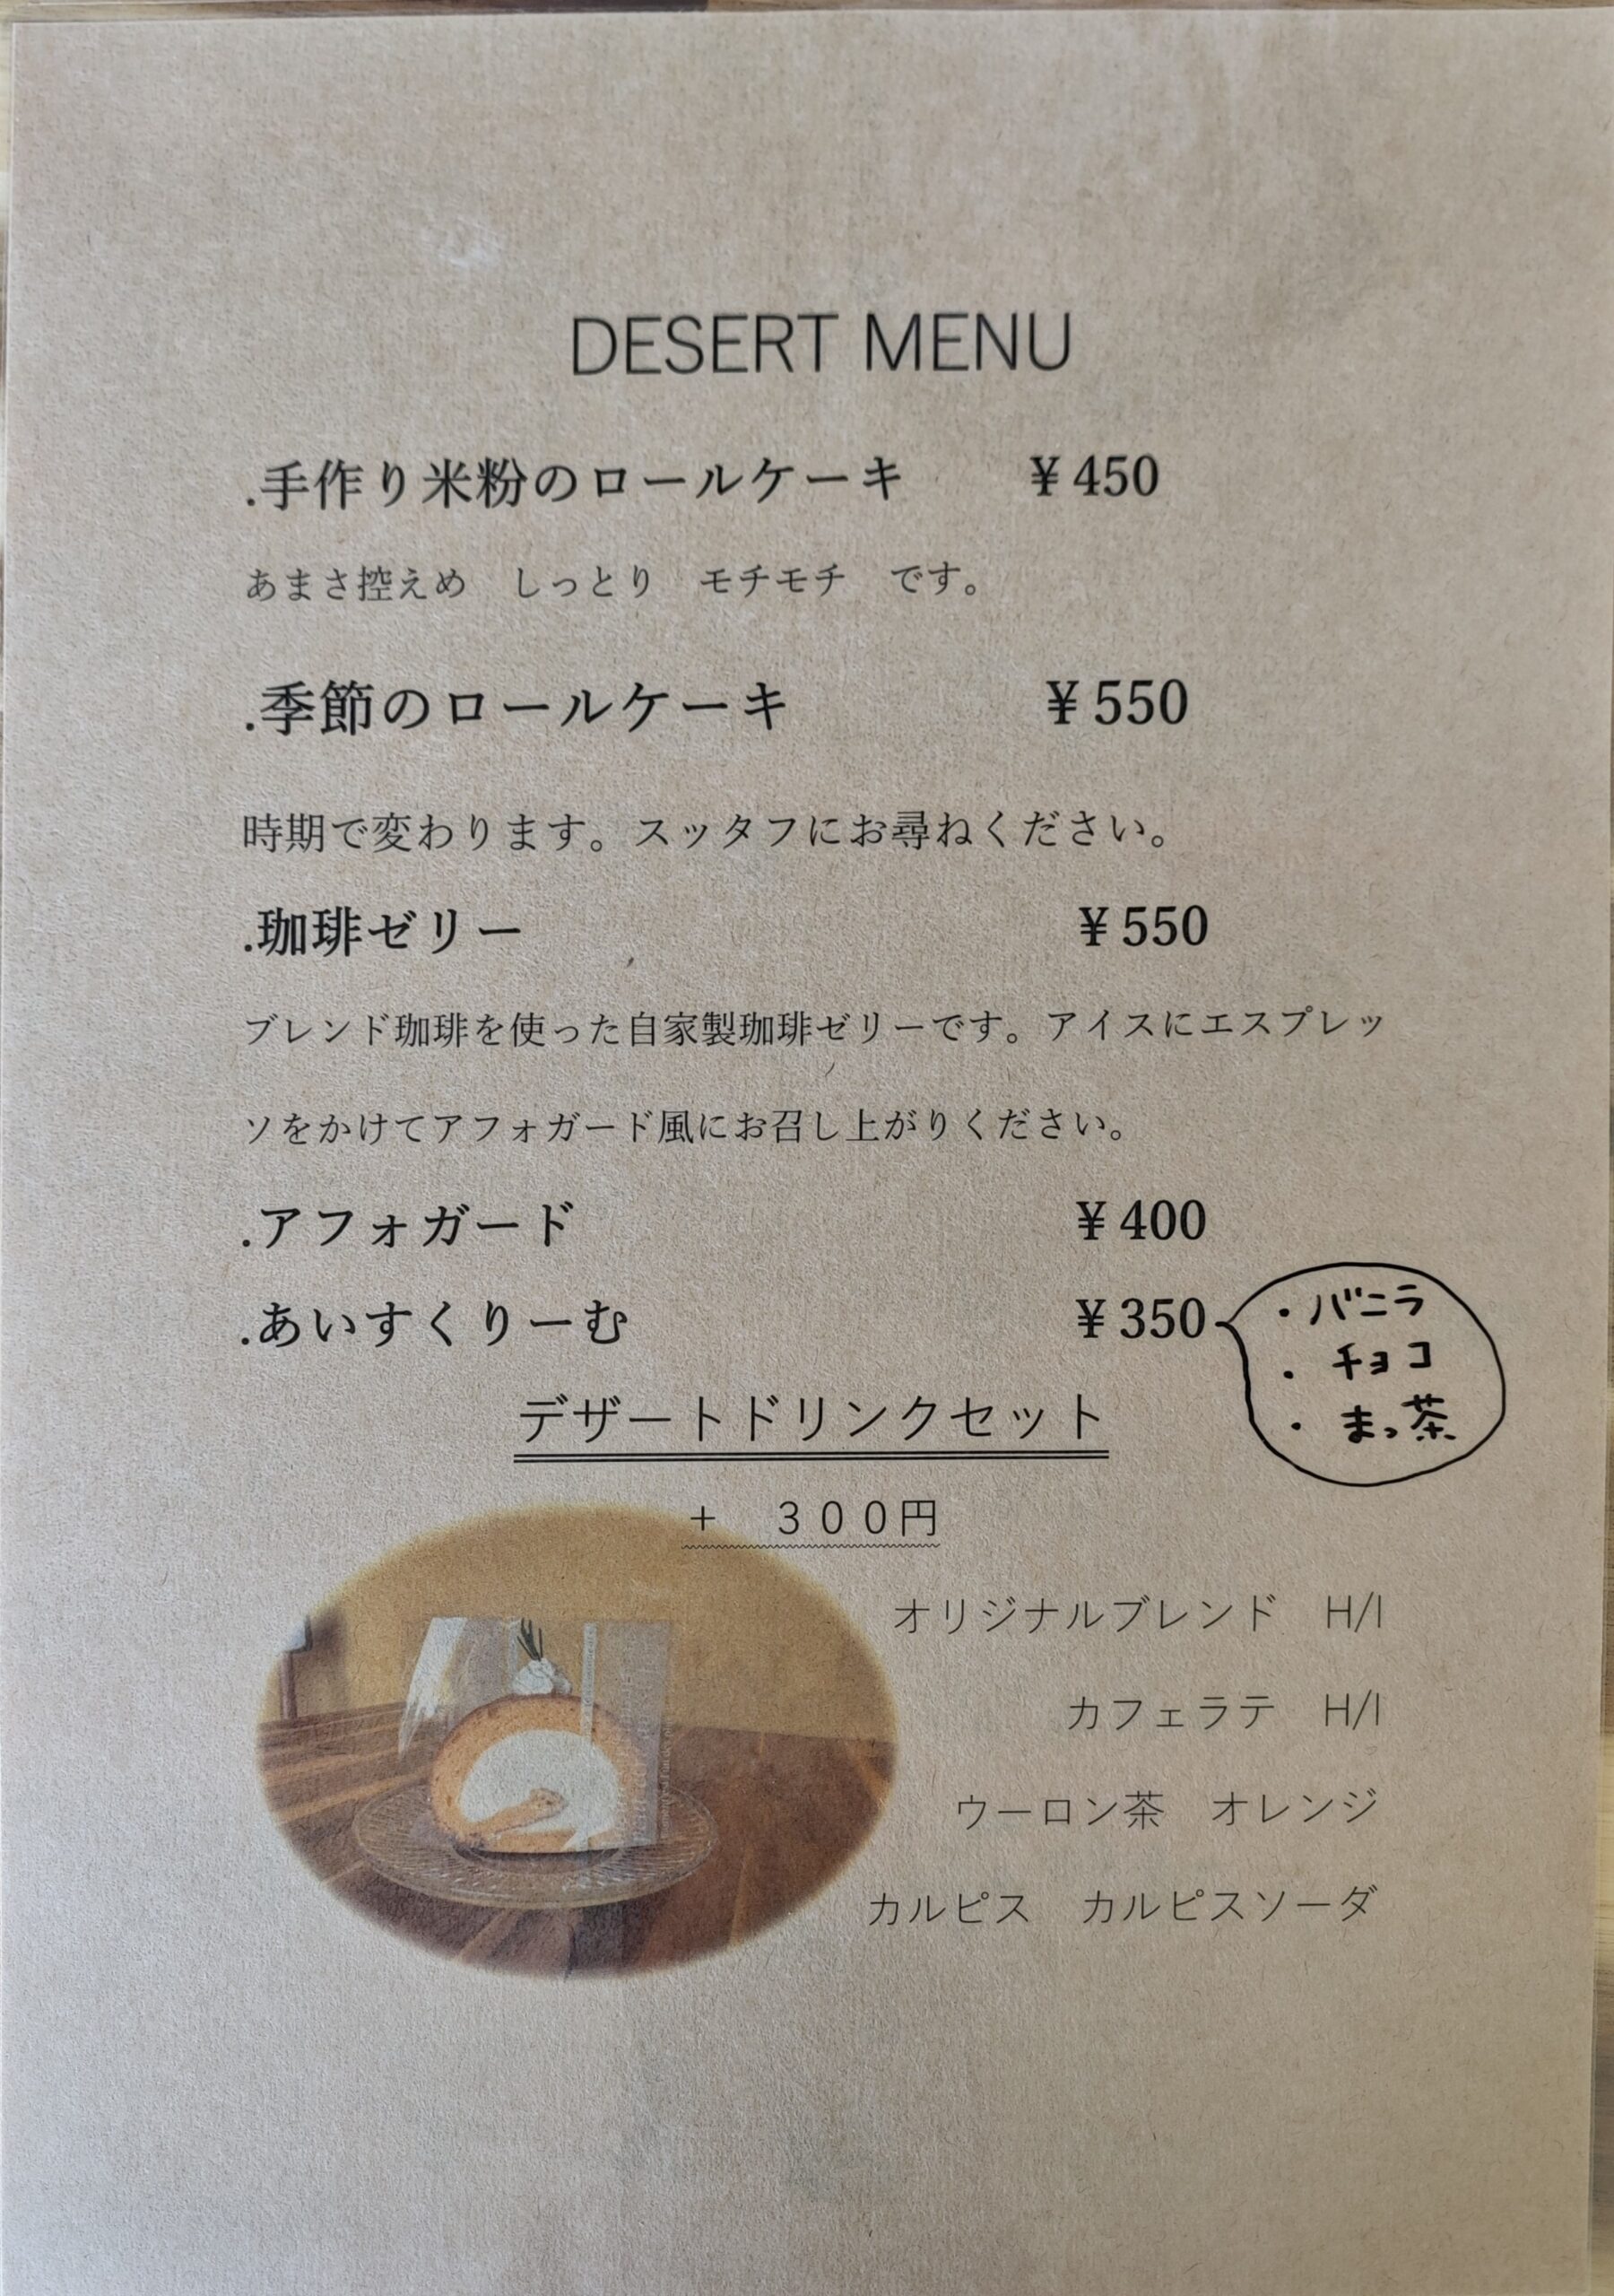 DESERT MENU
.手作り米粉のロールケーキ ¥450
あまさ控えめ しっとり モチモチ です。
.季節のロールケーキ ¥550
時期で変わります。スッタフにお尋ねください。
.珈琲ゼリー ¥550
ブレンド珈琲を使った自家製珈琲ゼリーです。アイスにエスプレッ
ソをかけてアフォガード風にお召し上がりください。
.アフォガード ¥400
.あいすくりーむ ¥350
・バニラ
・チョコ
・まっ茶
デザートドリンクセット
+ 300円
オリジナルブレンド H/I
カフェラテ H/I
ウーロン茶 オレンジ
カルピス カルピスソーダ